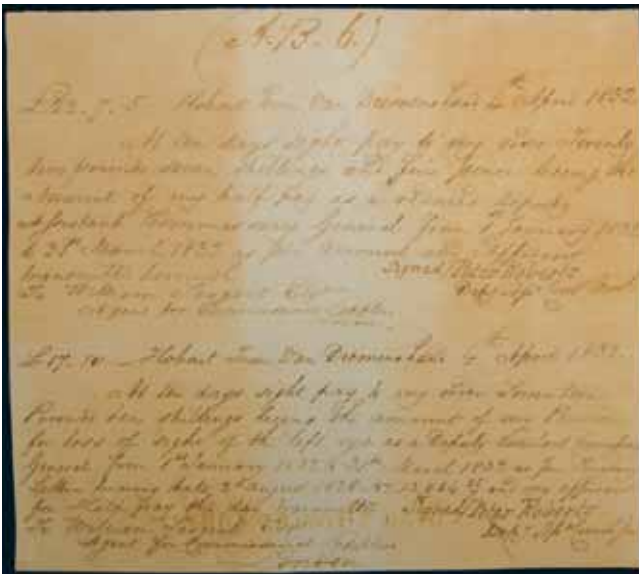 (A. B. 6.)
Hobart Town Van Diemens Land 4th April 1832
At ten days sight pay to my order Twenty
two pounds seven shillings and five pence being the
amount of my half pay as a retired Deputy
Assistant Commissary General from 1st January 1832
to 31st March 1832 as per account and
transmitted herewith Signed Peter Roberts
To William Sargent Esqre
Agent for Commissariat
£17. 10 Hobart Town Van Diemens Land 4th April 1832
At ten days sight pay to my order Seventeen
Pounds ten shillings being the amount of my
for loss of sight of the left eye as a Deputy
General from 1st January 1832 to 31st March 1832 as per
Letter bearing date 2d August 1828 and my
for Half pay this day transmitted Signed Peter Roberts
To William Sargent
Agent for Commissariat